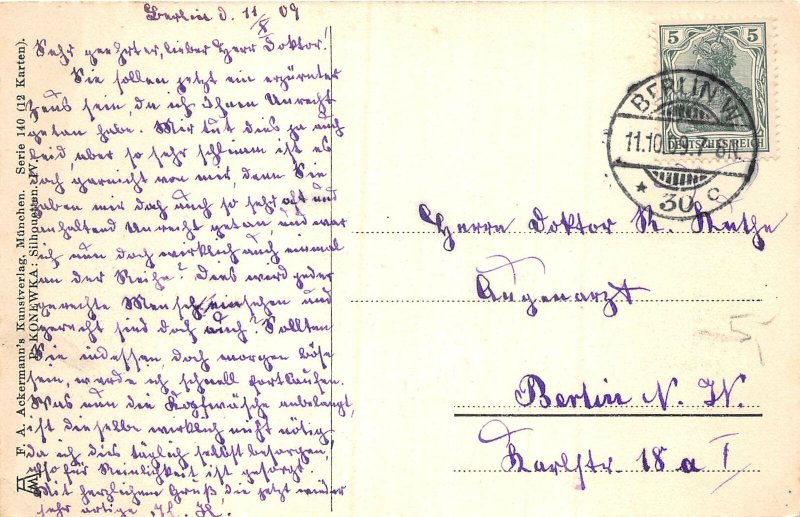 Berlin d. 11/X 09
Sehr geehrter, lieber Herr Doktor!
Sie sollen jetzt ein erzürnter
Zeus sein, da ich Ihnen Unrecht
getan habe. Mir tut dies ja auch
leid, aber so sehr schlimm ist es
doch garnicht von mir, denn Sie
haben mir doch auch so sehr oft und
anhaltend Unrecht getan, und war
ich nun doch wirklich auch einmal
an der Reihe! Dies wird jeder
gerechte Mensch einsehen und
gerecht sind doch auch? Sollten
Sie indessen doch morgen böse
sein, werde ich schnell fortlaufen.
Was nun die Kopfwäsche anbelangt,
ist dieselbe wirklich nicht nötig,
da ich dies täglich selbst besorge,
also für Reinlichkeit ist gesorgt.
Mit herzlichem Gruß, die jetzt wieder
sehr artige
F. A. Ackermann's Kunstverlag, München. Serie 140 (12 Karten).
P. KONEWKA: Silhouetten. IV.
5 5
DEUTSCHES REICH
BERLIN W.
11.10.09.7-8N.
* 30 c
Herrn Doktor R.
Augenarzt
Berlin N. W.
Karlstr. 18 a I
5